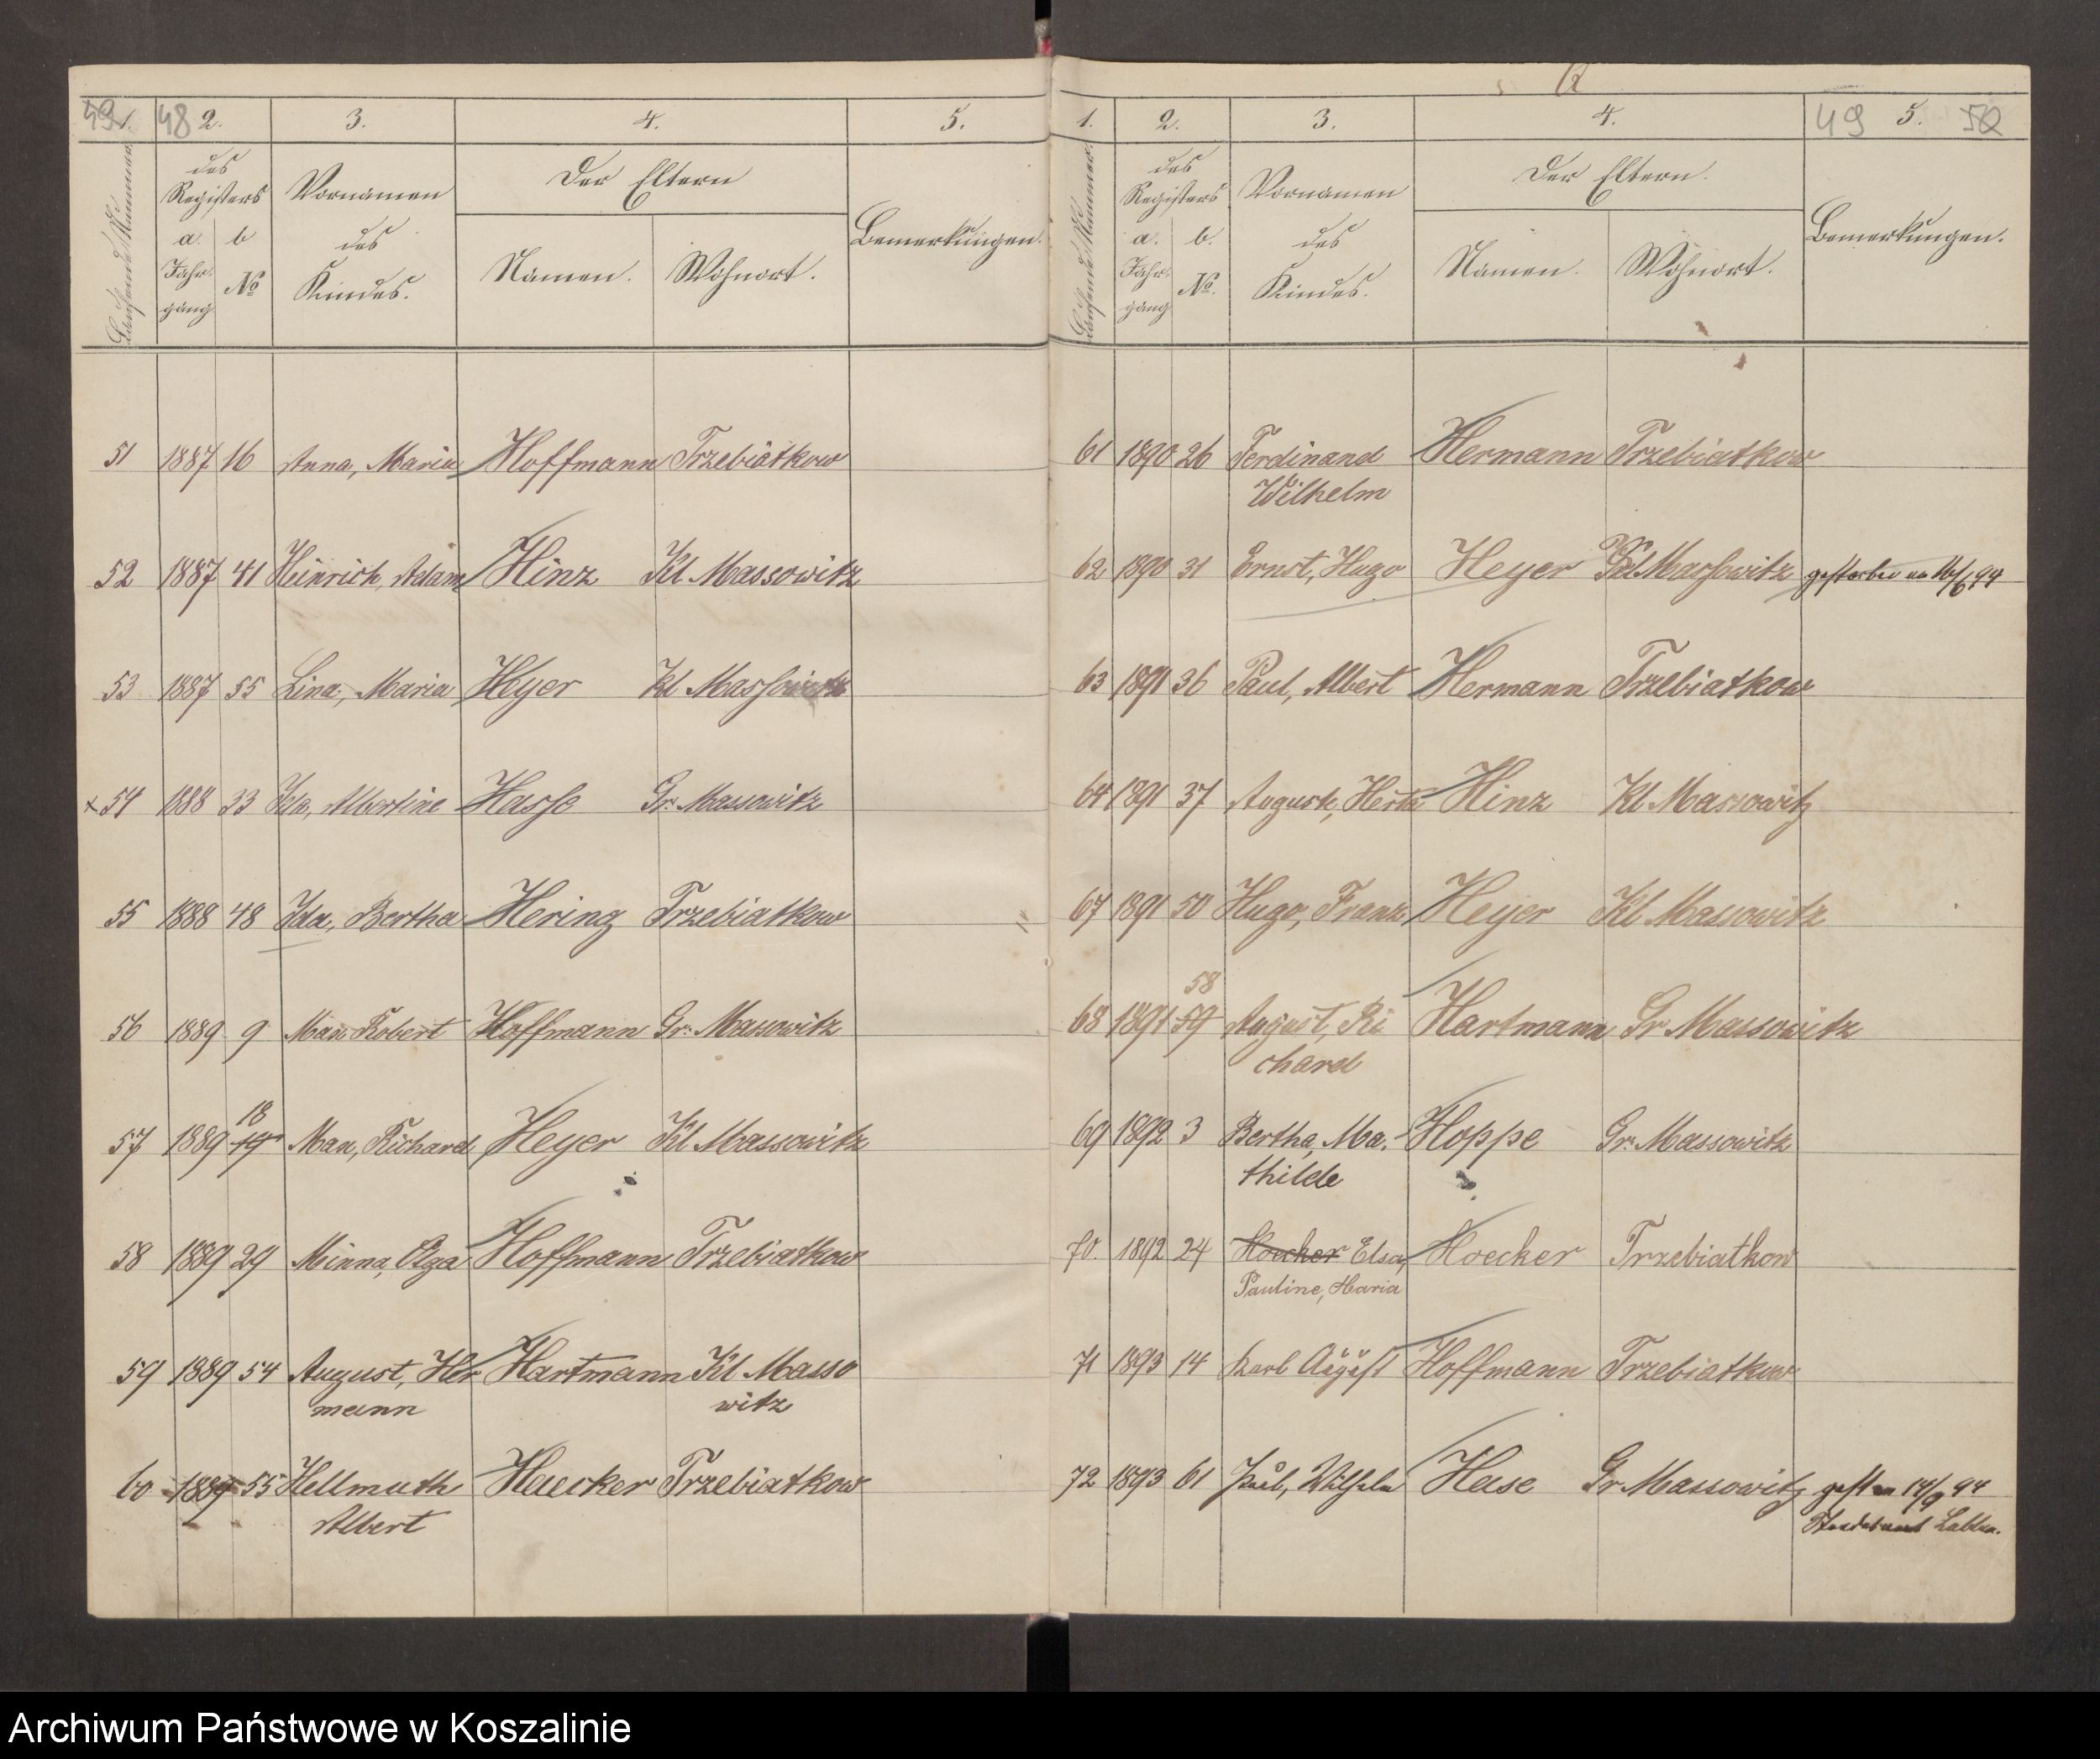 49 1. 48 2. 3. 4. 5.
Laufende Nummer
des Registers
Vornamen des Kindes.
Der Eltern
Bemerkungen.
a. b
Jahrgang № Namen. Wohnort.
51 1887 16 Anna, Maria Hoffmann Trzebiatkow
52 1887 41 Heinrich, Adam Hinz Kl Massowitz
53 1887 55 Lina, Maria Heyer Kl Massowitz
x 54 1888 33 Ida, Albertine Hasse Gr. Massowitz
55 1888 48 Ida, Bertha Hering Trzebiatkow
56 1889 9 Max Robert Hoffmann Gr. Massowitz
18
57 1889 19 Max, Richard Heyer Kl Massowitz
58 1889 29 Minna, Olga Hoffmann Trzebiatkow
59 1889 54 August, Her Hartmann Kl Masso
mann witz
60 1889 55 Hellmuth Haecker Trzebiatkow
Albert
1. 2. 3. 4. 49 5. 50
Laufende Nummer
des Registers
Vornamen des Kindes.
Der Eltern.
Bemerkungen.
a. b.
Jahrgang №. Namen. Wohnort.
61 1890 26 Ferdinand Hermann Trzebiatkow
Wilhelm
62 1890 31 Ernst, Hugo Heyer Kl Massowitz gestorben am 16/6 94
63 1891 36 Paul, Albert Hermann Trzebiatkow
64 1891 37 August, Herta Hinz Kl Massowitz
67 1891 50 Hugo, Franz Heyer Kl Massowitz
58
68 1891 59 August, Ri Hartmann Gr Massowitz
chard
69 1892 3 Bertha, Ma. Hoppe Gr. Massowitz
thilde
70. 1892 24 Hoecker Elsa, Hoecker Trzebiatkow
Pauline, Maria
71 1893 14 Karl August Hoffmann Trzebiatkow
72 1893 61 Paul, Wilhelm Hese Gr Massowitz gest am 14/9 94
Standesamt
Archiwum Państwowe w Koszalinie